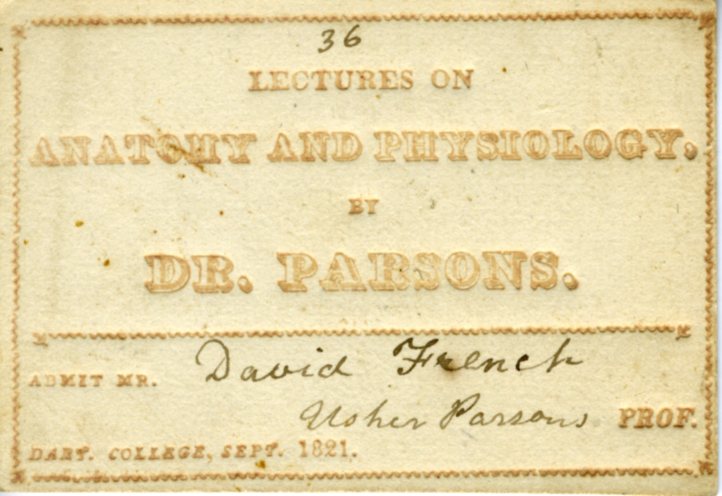 36
LECTURES ON
ANATOMY AND PHYSIOLOGY,
BY
DR. PARSONS.
ADMIT MR. David French
Usher Parsons PROF.
DART. COLLEGE, SEPT. 1821.